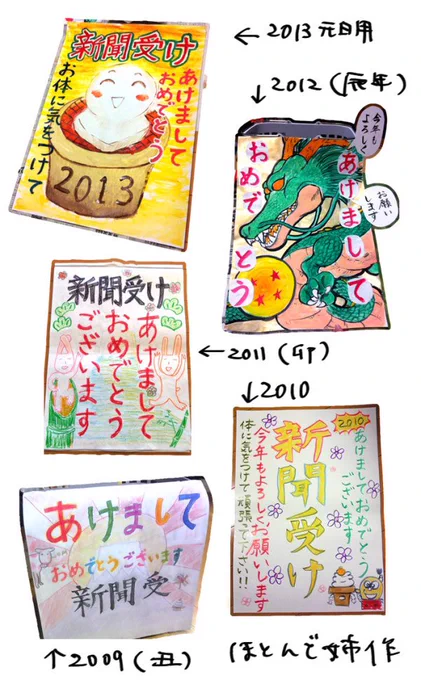 新聞受け
あけまして
おめでとう
お体に気をつけて
2013
← 2013 元日用
↓ 2012 (辰年)
今年も
よろしく
お願い
します
あけまして
おめでとう
新聞受け
あけまして
おめでとう
ございます
← 2011 (卯)
↓ 2010
2010
あけましておめでとう
ございます
新聞受け
今年もよろしくお願いします
体に気をつけて頑張って下さい!!
あけまして
おめでとうございます
新聞受
↑ 2009 (丑)
ほとんど姉作